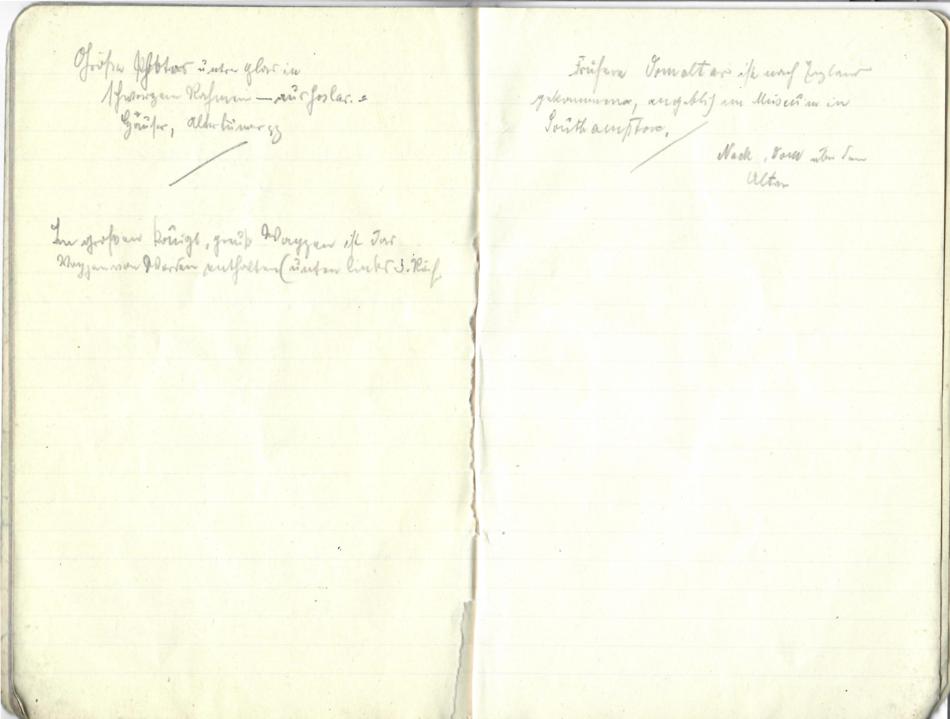 Große Photos unter Glas in
schwarzen Rahmen — aus Goslar. =
Häuser, Altertümer
Im großen königl. preuß. Wappen ist das
Wappen von Verden enthalten (unten links 3.
Früherer Domaltar ist nach England
gekommen, angeblich im Museum in
Southampton.
Nach, dem
Altar